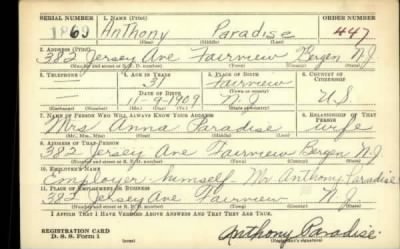 SERIAL NUMBER 1. NAME (Print) ORDER NUMBER
1863 Anthony Paradise 447
(First) (Middle) (Last)
2. ADDRESS (Print)
382 Jersey Ave Fairview Bergen N.J.
(Number and street or R. F. D. number) (Town) (County) (State)
3. TELEPHONE 4. AGE IN YEARS 5. PLACE OF BIRTH 6. COUNTRY OF CITIZENSHIP
31 Fairview
(Town or county)
DATE OF BIRTH
11-9-1909 N.J. U.S.
(Exchange) (Number) (Mo.) (Day) (Yr.) (State or country)
7. NAME OF PERSON WHO WILL ALWAYS KNOW YOUR ADDRESS 8. RELATIONSHIP OF THAT PERSON
Mrs Anna Paradise wife
(Mr., Mrs., Miss) (First) (Middle) (Last)
9. ADDRESS OF THAT PERSON
382 Jersey Ave Fairview Bergen N.J.
(Number and street or R. F. D. number) (Town) (County) (State)
10. EMPLOYER'S NAME
Employer-himself Mr Anthony Paradise
11. PLACE OF EMPLOYMENT OR BUSINESS
382 Jersey Ave Fairview N.J.
(Number and street or R. F. D. number) (Town) (County) (State)
I AFFIRM THAT I HAVE VERIFIED ABOVE ANSWERS AND THAT THEY ARE TRUE.
REGISTRATION CARD
D. S. S. Form 1 (over) Anthony Paradise
(Registrant's signature)